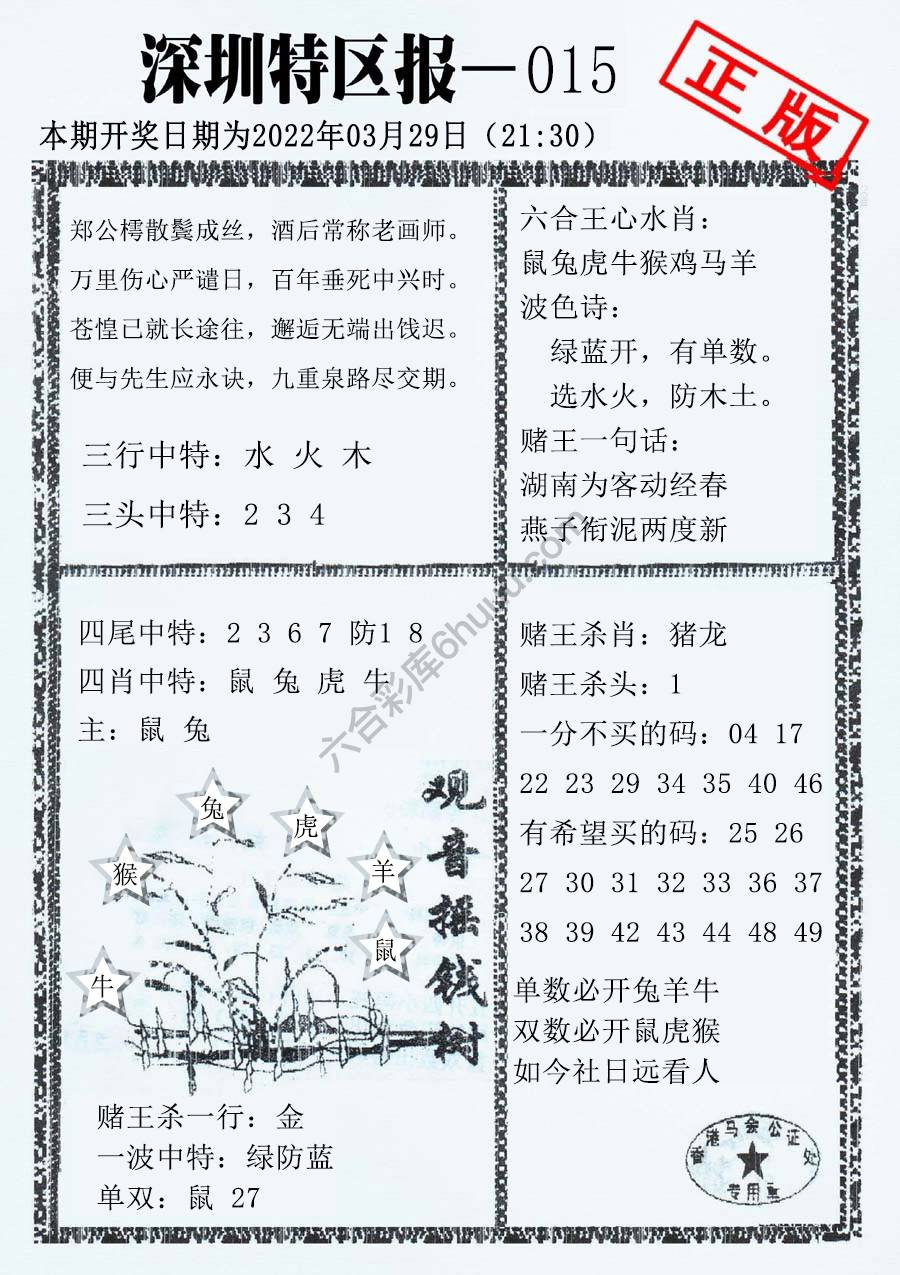 深圳特区报—015
正版
本期开奖日期为2022年03月29日（21:30）
郑公樗散鬓成丝，酒后常称老画师。
万里伤心严谴日，百年垂死中兴时。
苍惶已就长途往，邂逅无端出饯迟。
便与先生应永诀，九重泉路尽交期。
三行中特：水 火 木
三头中特：2 3 4
六合王心水肖：
鼠兔虎牛猴鸡马羊
波色诗：
绿蓝开，有单数。
选水火，防木土。
赌王一句话：
湖南为客动经春
燕子衔泥两度新
四尾中特：2 3 6 7 防1 8
四肖中特：鼠 兔 虎 牛
主：鼠 兔
兔
虎
猴
羊
鼠
牛
观音摇钱树
赌王杀一行：金
一波中特：绿防蓝
单双：鼠 27
赌王杀肖：猪龙
赌王杀头：1
一分不买的码：04 17
22 23 29 34 35 40 46
有希望买的码：25 26
27 30 31 32 33 36 37
38 39 42 43 44 48 49
单数必开兔羊牛
双数必开鼠虎猴
如今社日远看人
香港马会公证处
专用章
六合彩库6huu.com